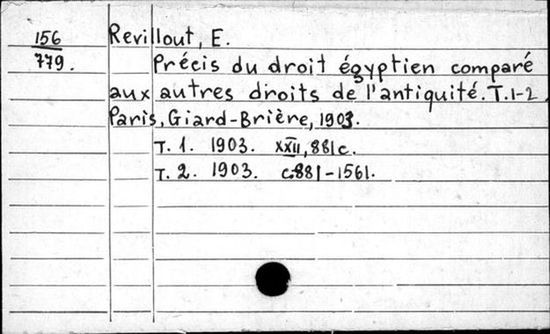 156
779.
Revillout, E.
Précis du droit égyptien comparé
aux autres droits de l'antiquité. T.1-2.
Paris, Giard-Brière, 1903.
T. 1. 1903. XXII, 881 c.
T. 2. 1903. c. 881-1561.